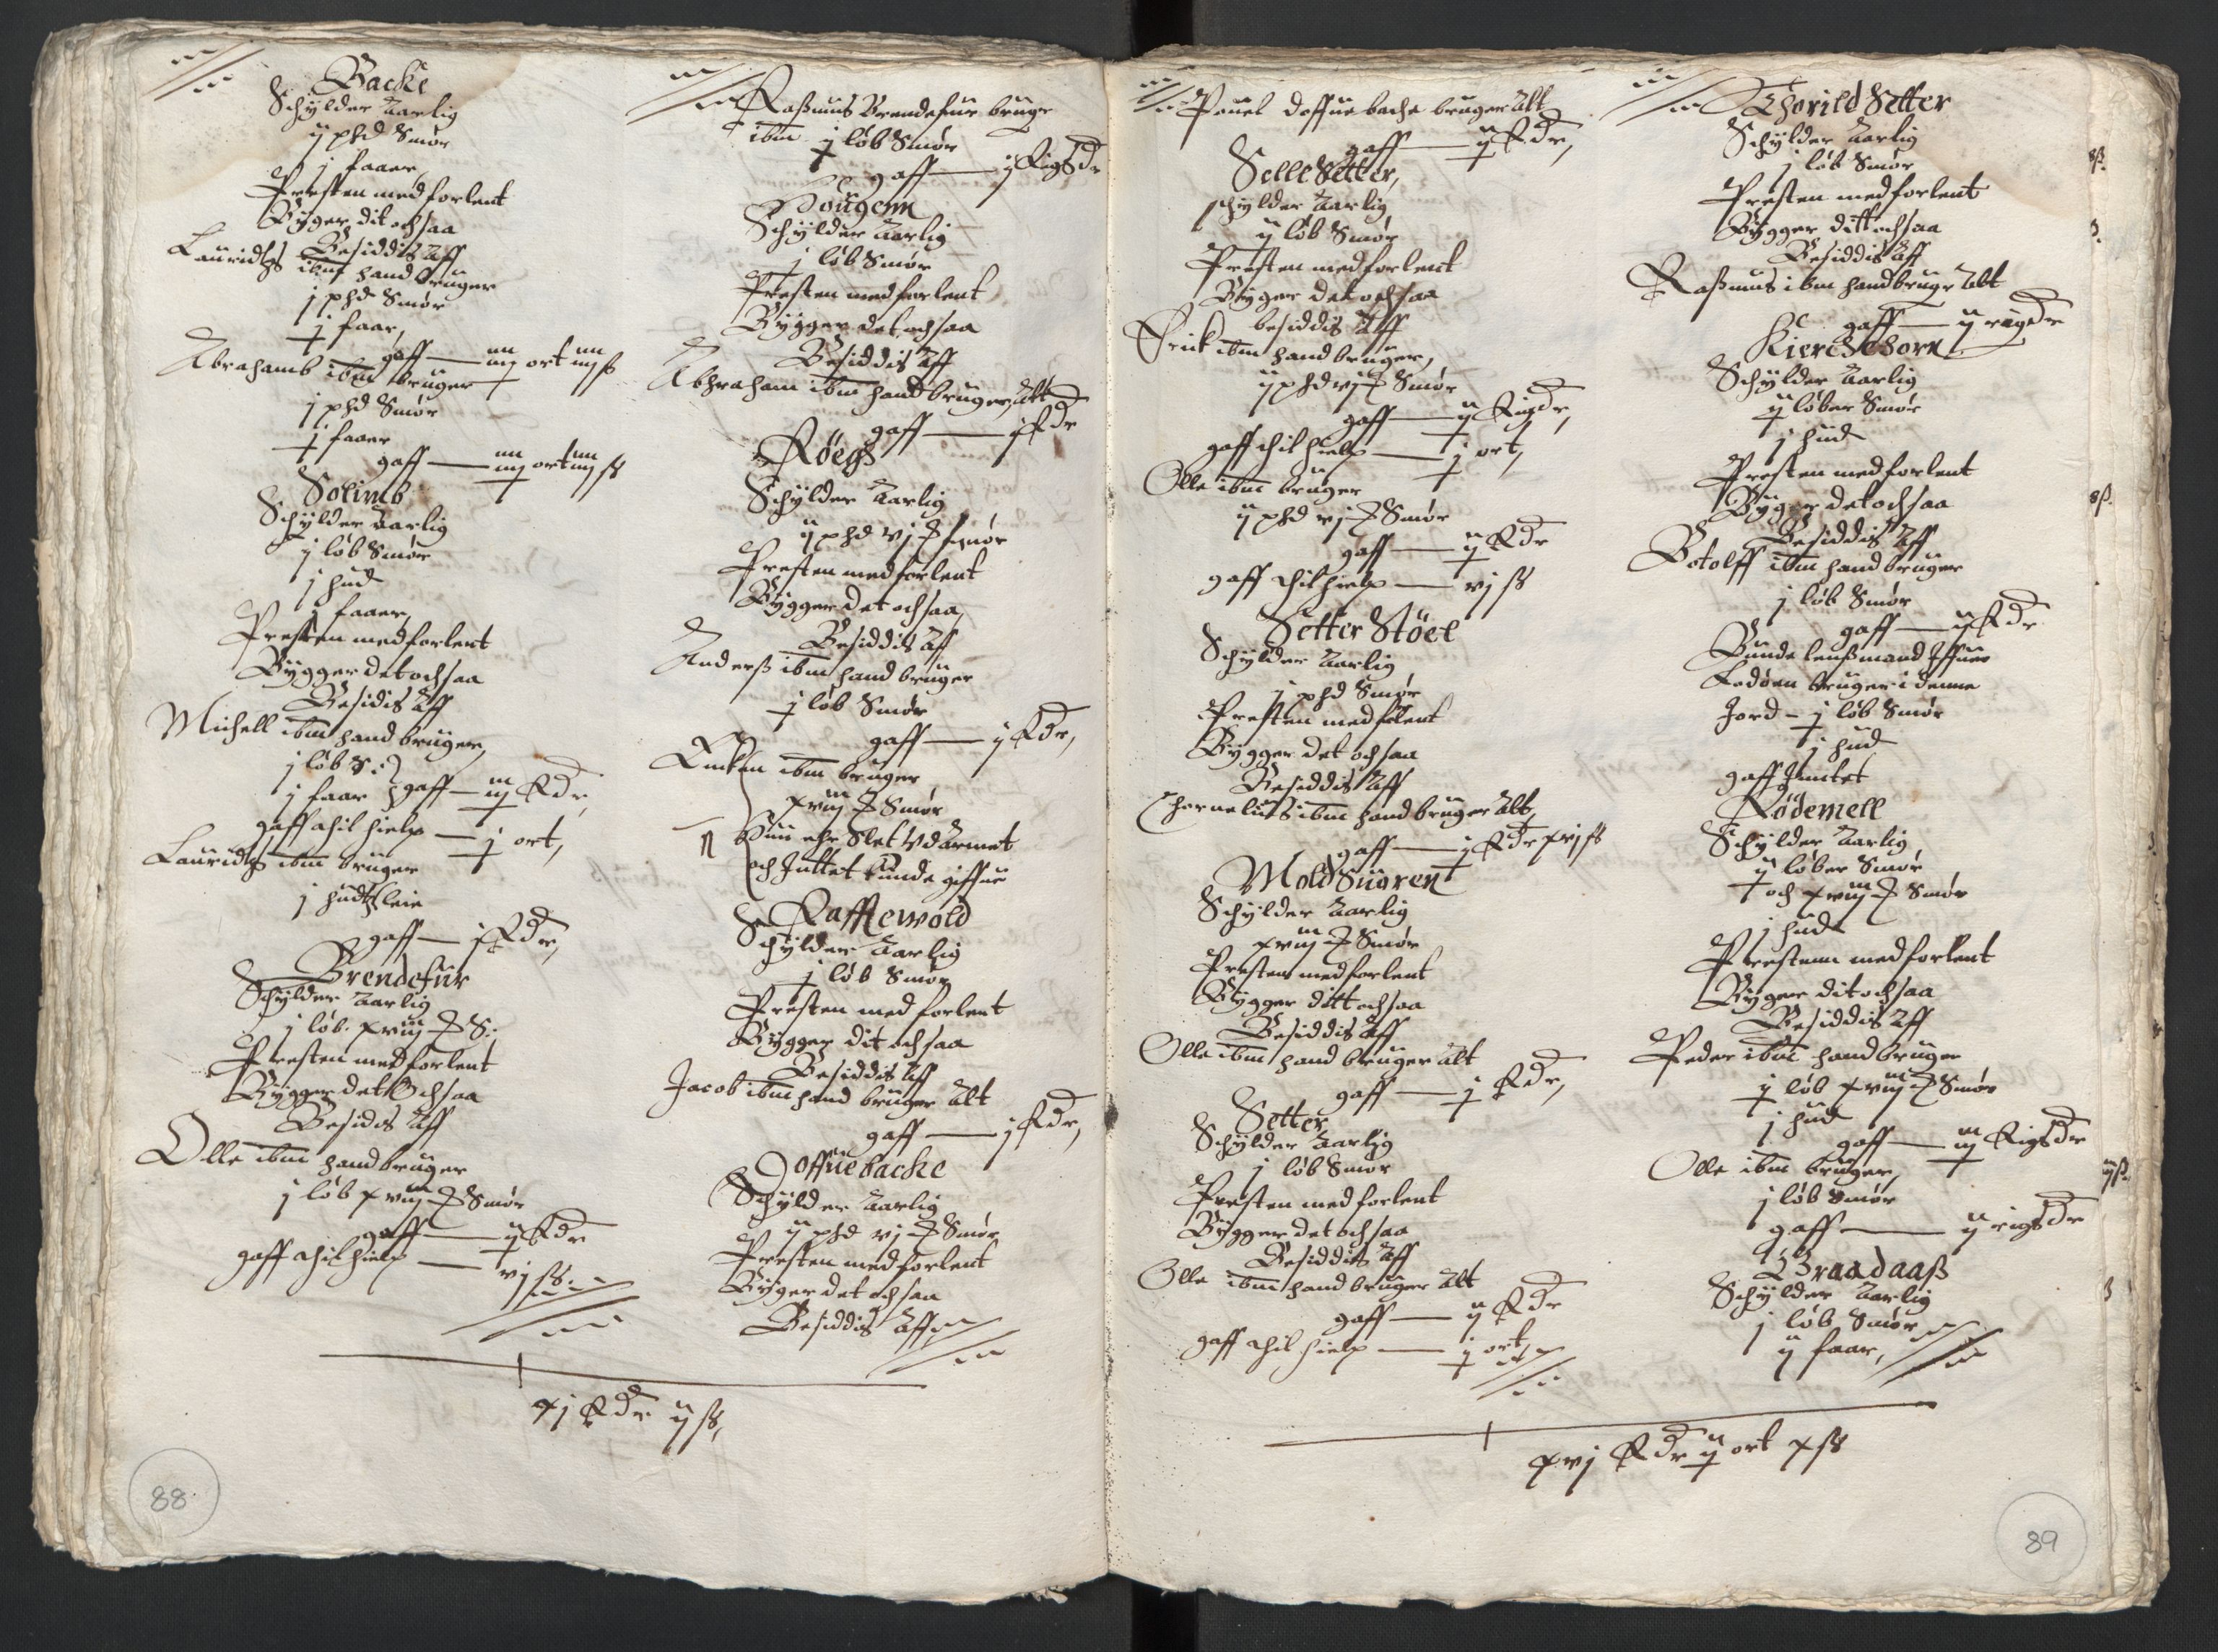 Backe
Schylder Aarlig
ij phd Smør
j faaer
Presten med forlent
Bÿger dit och saa
Besiddis Aff
Lauridtz ibm hand brüger
j phd Smør
j faar,
gaff — iiij ort iiij ß
Abrahamb ibm brüger
j phd Smør
j faaer
gaff — iiij ort iiij ß
Solimb
Schÿlder Aarlig
ij løb Smør
j hud
j faaer
Presten med forlent
Bÿgger det och saa
Besidis Aff
Michell ibm hand brüger,
j løb S:
j faar } gaff — iij Rdr
gaff thil hielp — j ort,
Lauridtz ibm brüger
j hudtzleie
gaff — j Rdr,
Brendefür
Schÿlder Aarlig
j løb. xviij # S:
Presten med forlent
Bÿgger det Och saa
Besidis Aff
Olle ibm hand brüger
j løb xviij # Smør
gaff — ij Rdr
gaff thil hielp — vj ß.
xj Rdr ij ß,
88
Rasmus Brendefuur brugr
ibm j løb Smør
gaff — j Rigsdr
Hougenn
Schÿlder Aarlig
j løb Smør
Presten med forlent
Bÿgger det och saa
Besiddis Aff
Abhraham ibm hand brüger Alt
gaff — j Rdr
Røegs
Schÿlder Aarlig
ij phd vj # smør
Presten med forlent
Bÿgger det och saa,
Besiddis Aff
Anderß ibm hand brüger
j løb Smør
gaff — j Rdr,
Enken ibm brüger
xviij # Smør
Huu ehr Slet Vdarmet
och Inttet kunde giffue
Raffnewold
Schÿlder Aarlig
j løb Smør
Presten med forlent
Bÿgger dit och saa
Besiddis Aff
Jacob ibm hand brüger Alt
gaff — j Rdr,
Doffüebacke
Schÿlder Aarlig
ij phd vj # Smør
Presten med forlent
Bÿger det och saa
Besiddis Aff
Pouel Doffuebache bruger Alt
gaff — ij Rdr,
Selle Setter,
schÿlder Aarlig
ij løb Smør
Presten med forlent
Bÿger det och saa
besiddis Aff
Erick ibm hand brüger,
ij phd vj # Smør
gaff — ij Rigdr,
gaff thil hielp — j ort,
Olle ibm brüger
ij phd vj # Smør
gaff — ij Rdr
gaff thil hielp — vj ß
Setter Støel
Schÿlder Aarlig
j phd Smør
Presten med forlent
Bÿgger det och saa
Besiddis Aff
Chornelius ibm hand brüger Alt,
gaff — j Rdr xvj ß
Mold Süaren
Schÿlder Aarlig
xviij # Smør
Presten med forlent
Bÿgger ditt och saa
Besiddis Aff
Olle ibm hand brüger Alt
gaff — j Rdr,
Setter
Schÿlder Aarlig
j løb Smør
Presten med forlent
Bÿgger det och saa
Besiddis Aff
Olle ibm hand brüger Alt
gaff — ij Rdr
gaff thil hielp — j ort
xvj Rdr ij ort x ß
Thorild Setter
Schÿlder Aarlig
j løb Smør
Presten med forlent
Bÿgger ditt och saa
Besiddis Aff
Rasmus ibm hand brugr Alt
gaff — ij rigdr
Kierchehorn
Schÿlder Aarlig
ij løber Smør
j hud
Presten med forlent
Bÿger det och saa
Besiddis Aff
Botolff ibm hand brüger
j løb Smør
gaff — ij Rdr
Bunde leußmand Iffuer
Rødøen brüger i denne
Jord — j løb Smør
j hud
gaff Inttet
Rødemell
Schÿlder Aarlig
ij løber Smør
och xviij # Smør
j hud
Prestenn med forlent
Bÿger dit och saa
Besiddis Aff
Peder ibm hand brüger
ij løb xviij # Smør
j hud
gaff — iij Rigsdr
Olle ibm brüger,
j løb Smør
gaff — ij rigsdr
Braadaaß
Schÿlder Aarlig
j løb Smør
ij faar,
89